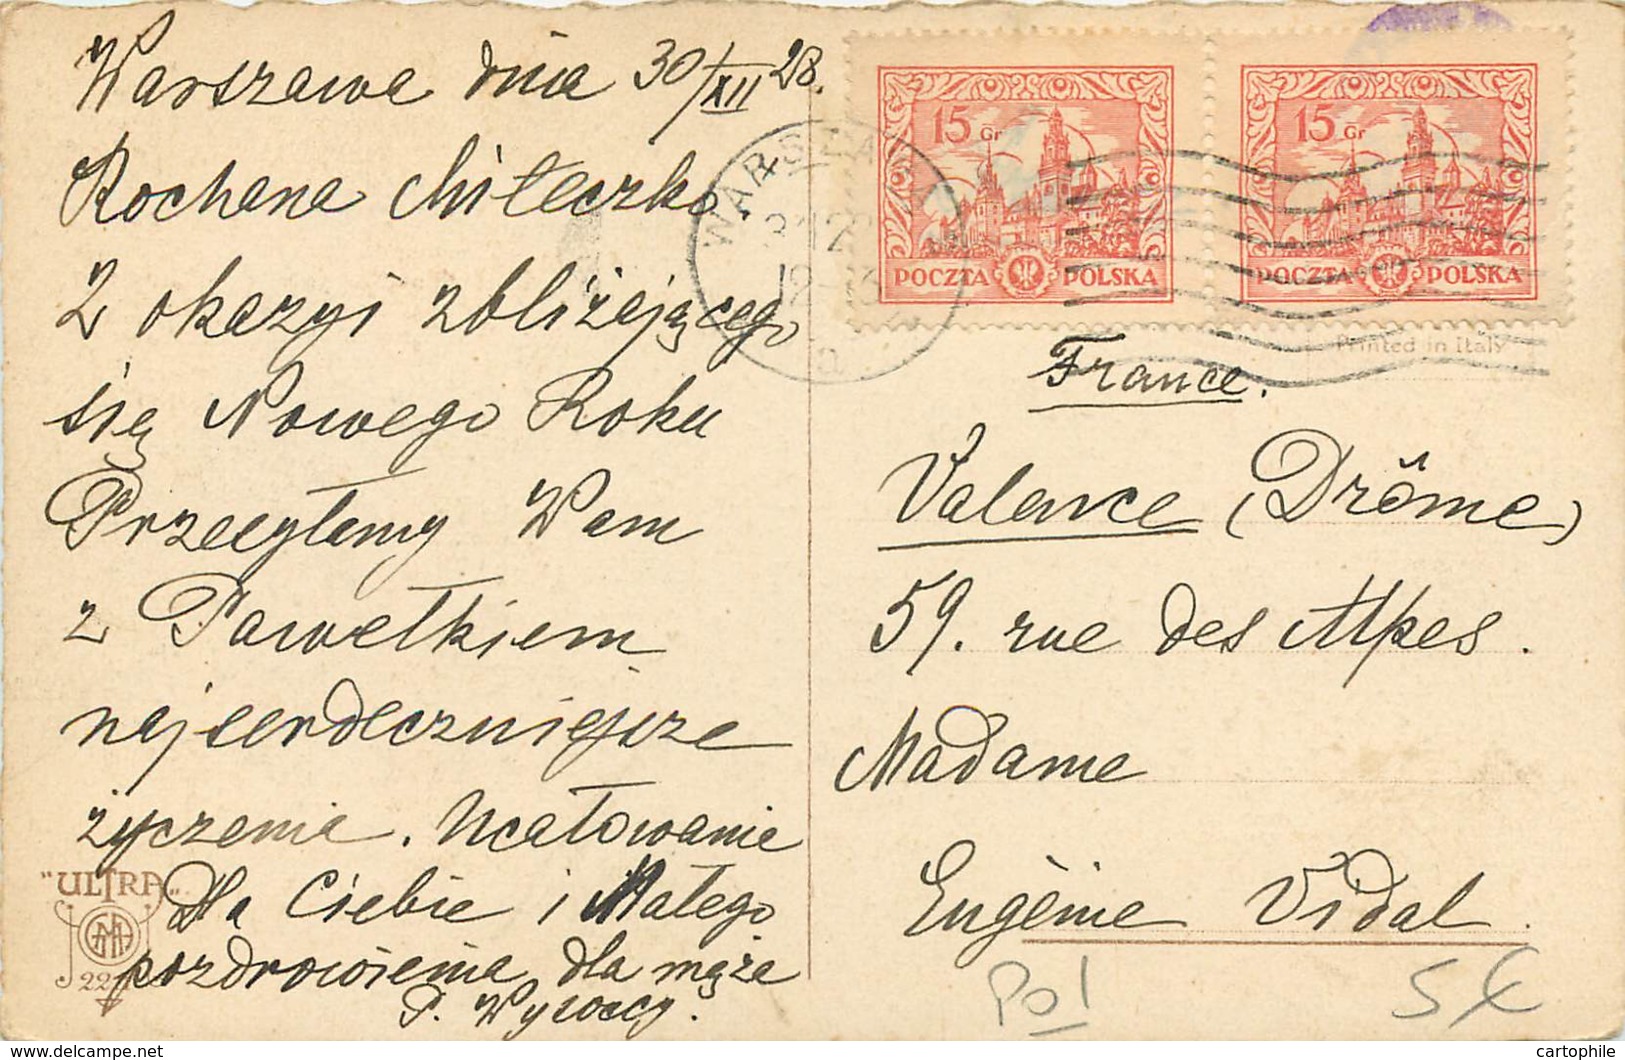 Warszawa dnia 30/XII 28.
Kochana Mileczko.
Z okazyi zbliżającego
się Nowego Roku
Przesyłamy Wam
z Pawełkiem
najserdeczniejsze
życzenia. Ucałowanie
Dla Ciebie i Małego
pozdrowienia dla męża
P. Wysoccy.
"ULTRA"
GMA
15 Gr
POCZTA POLSKA
15 Gr
POCZTA POLSKA
WARSZAWA
Printed in Italy
France.
Valence (Drôme)
59. rue des Alpes.
Madame
Eugènie Vidal.
Pol
cartophile